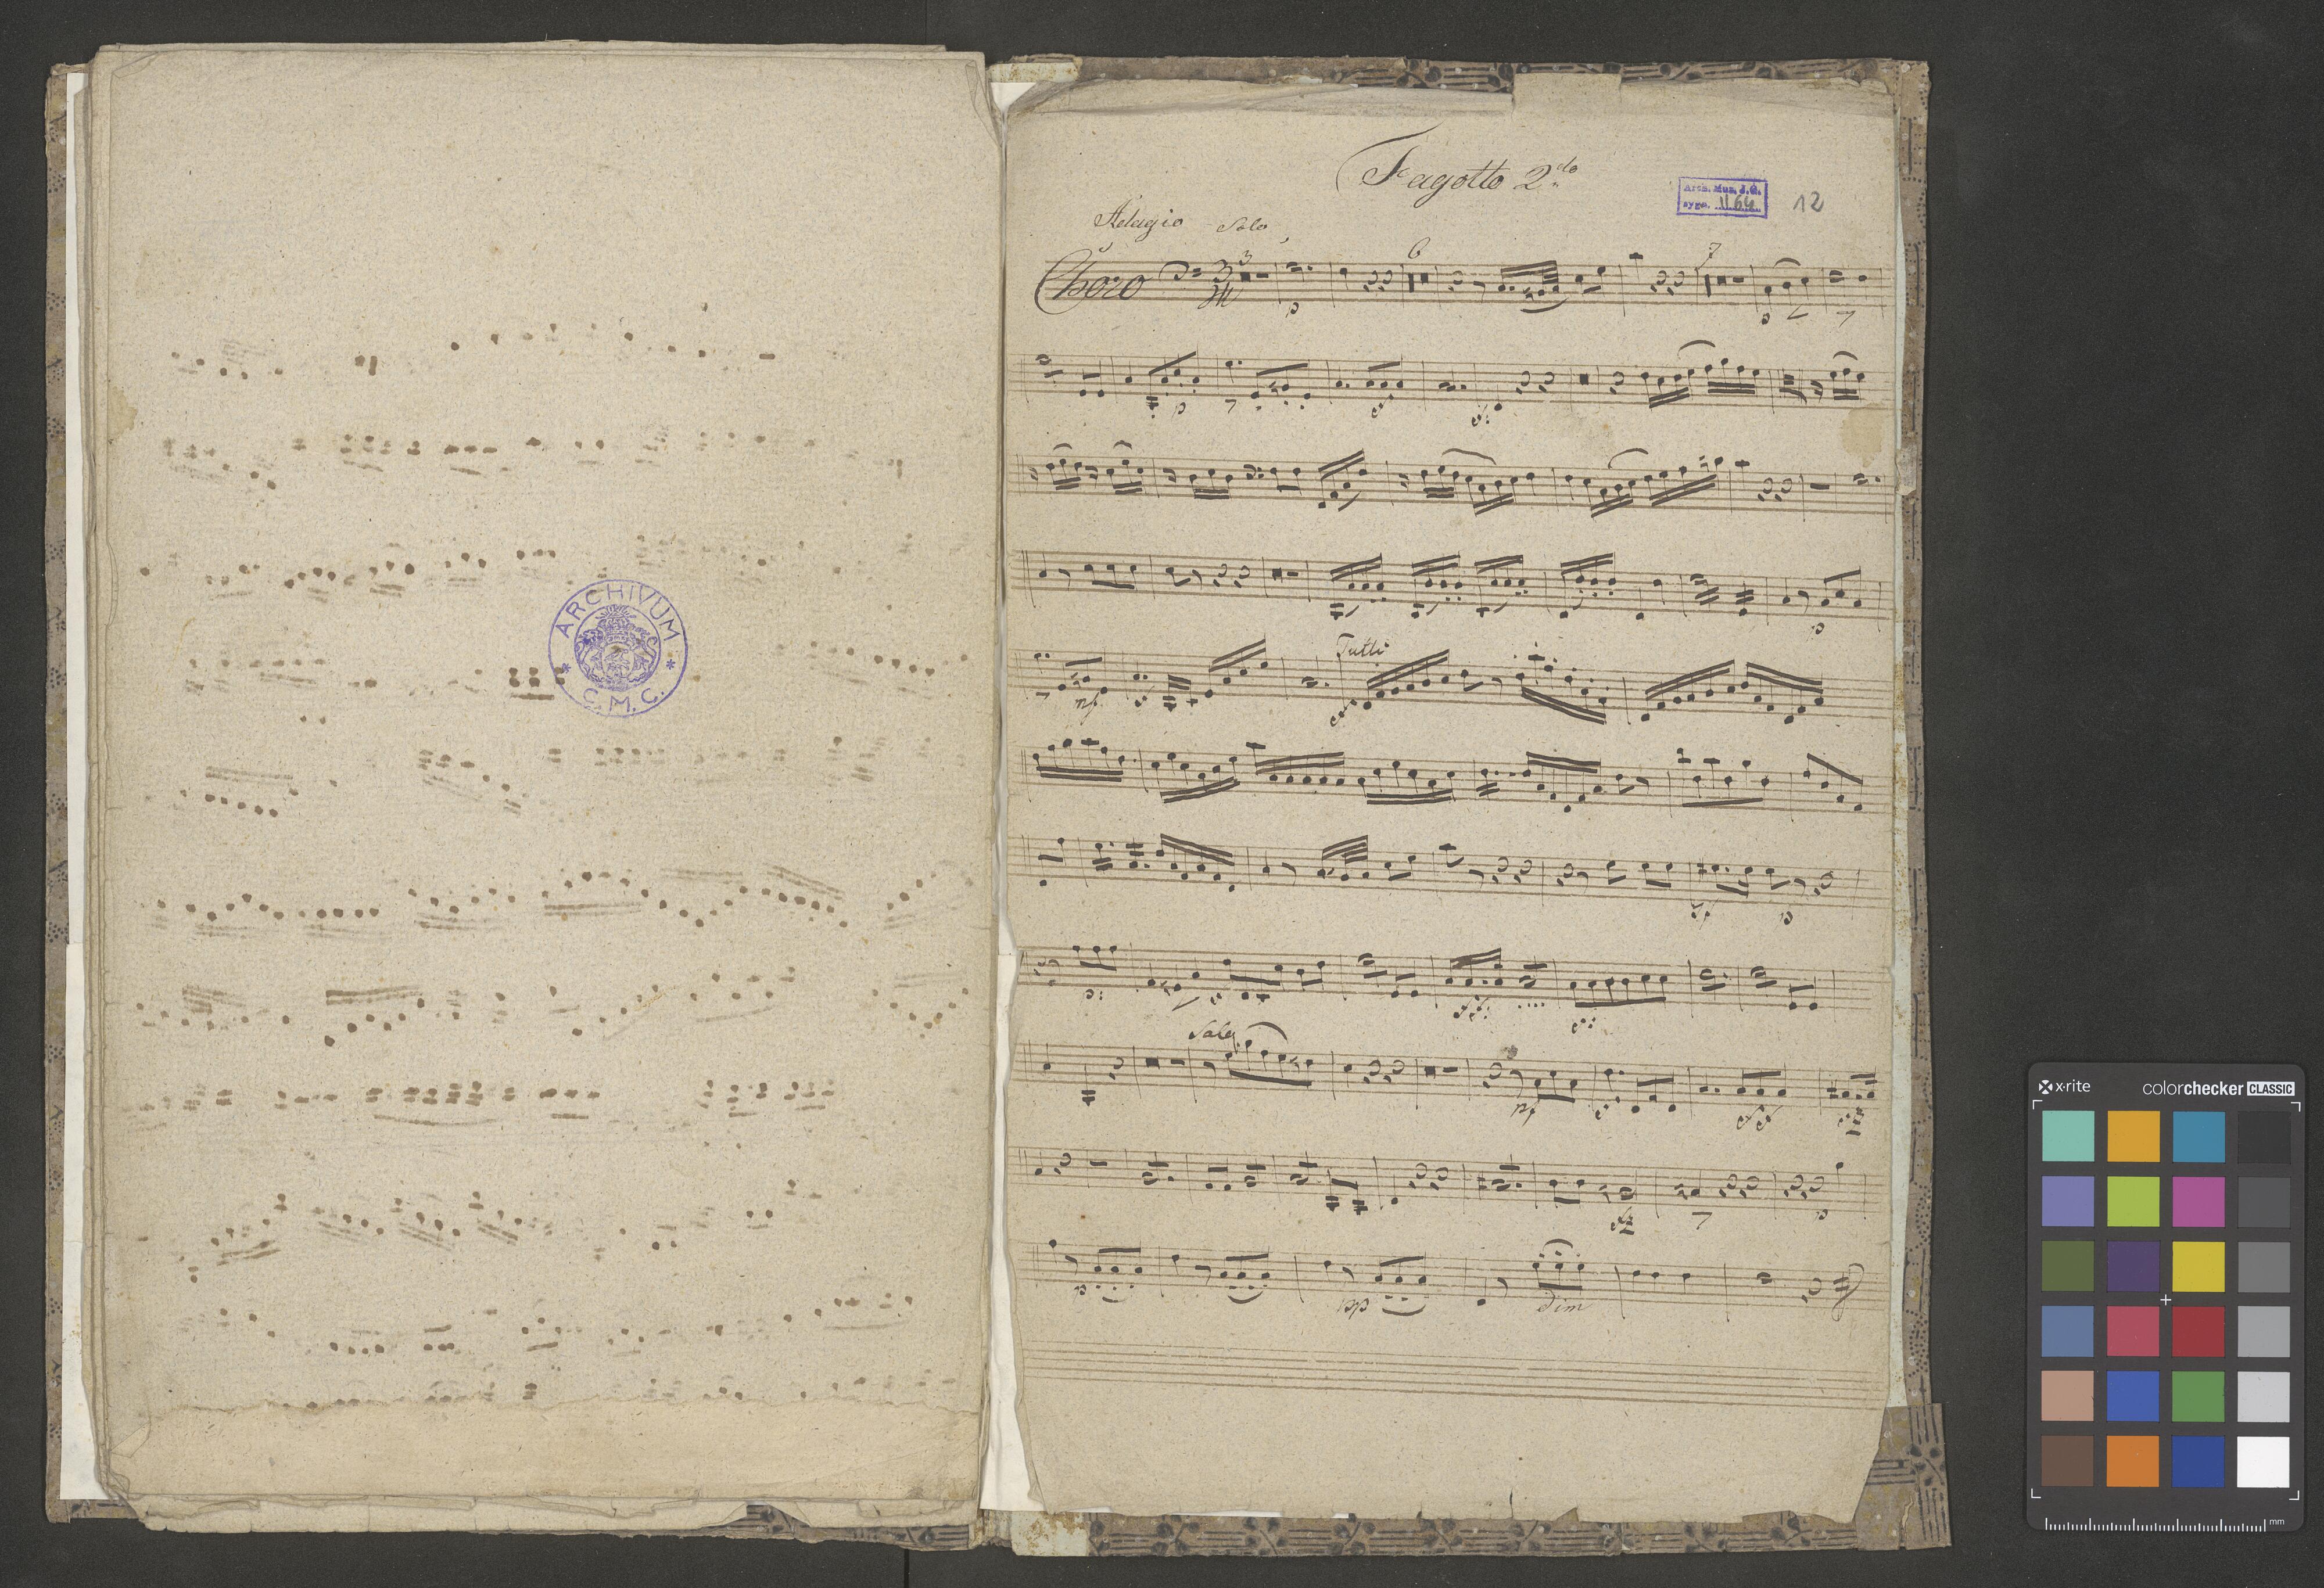 ARCHIVUM
* C.M.C. *
Fagotto 2do
Arch. Muz. J. G.
sygn. II 64
12
Adagio Solo
3 6 7
Choro 3/4
p p
p
p
Tutti
nf
p
p:
Solo
nf
p
p pp dim
x·rite colorchecker CLASSIC
mm